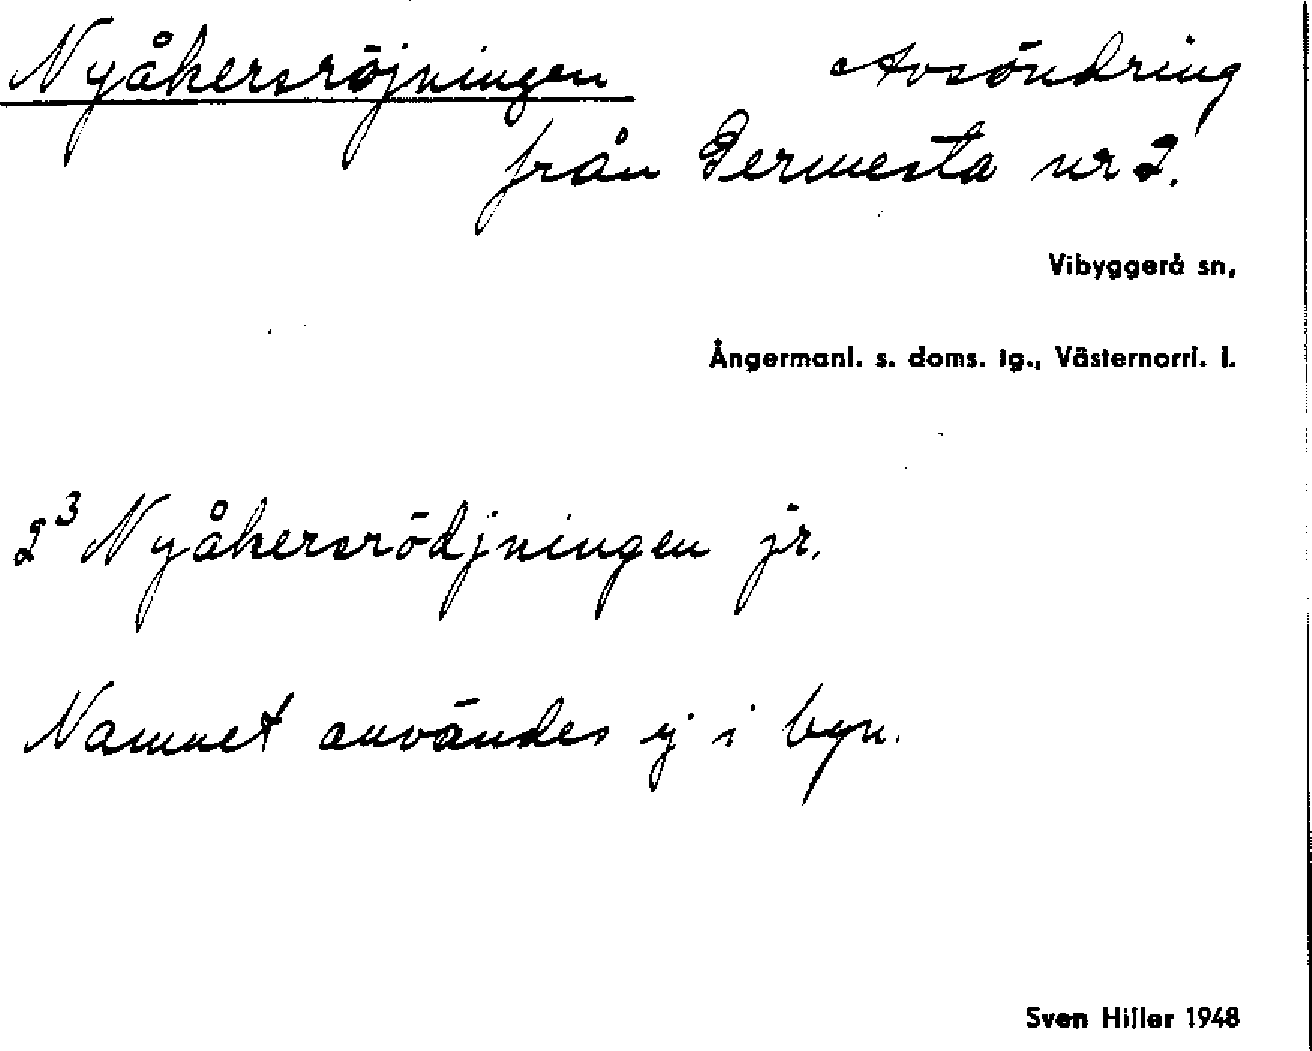 Nyåkersröjningen Avsöndring
från Permesta nr 2.
Vibyggerå sn,
Ångermanl. s. doms. tg., Västernorrl. l.
2³ Nyåkersrödjningen jr.
Namnet användes ej i byn.
Sven Hiller 1948